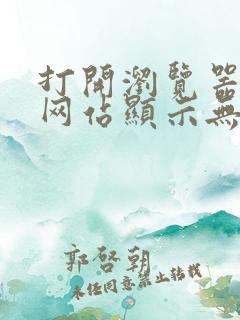 打開瀏覽器
网佔顯示無
郭啓朝
未经同意禁止转载